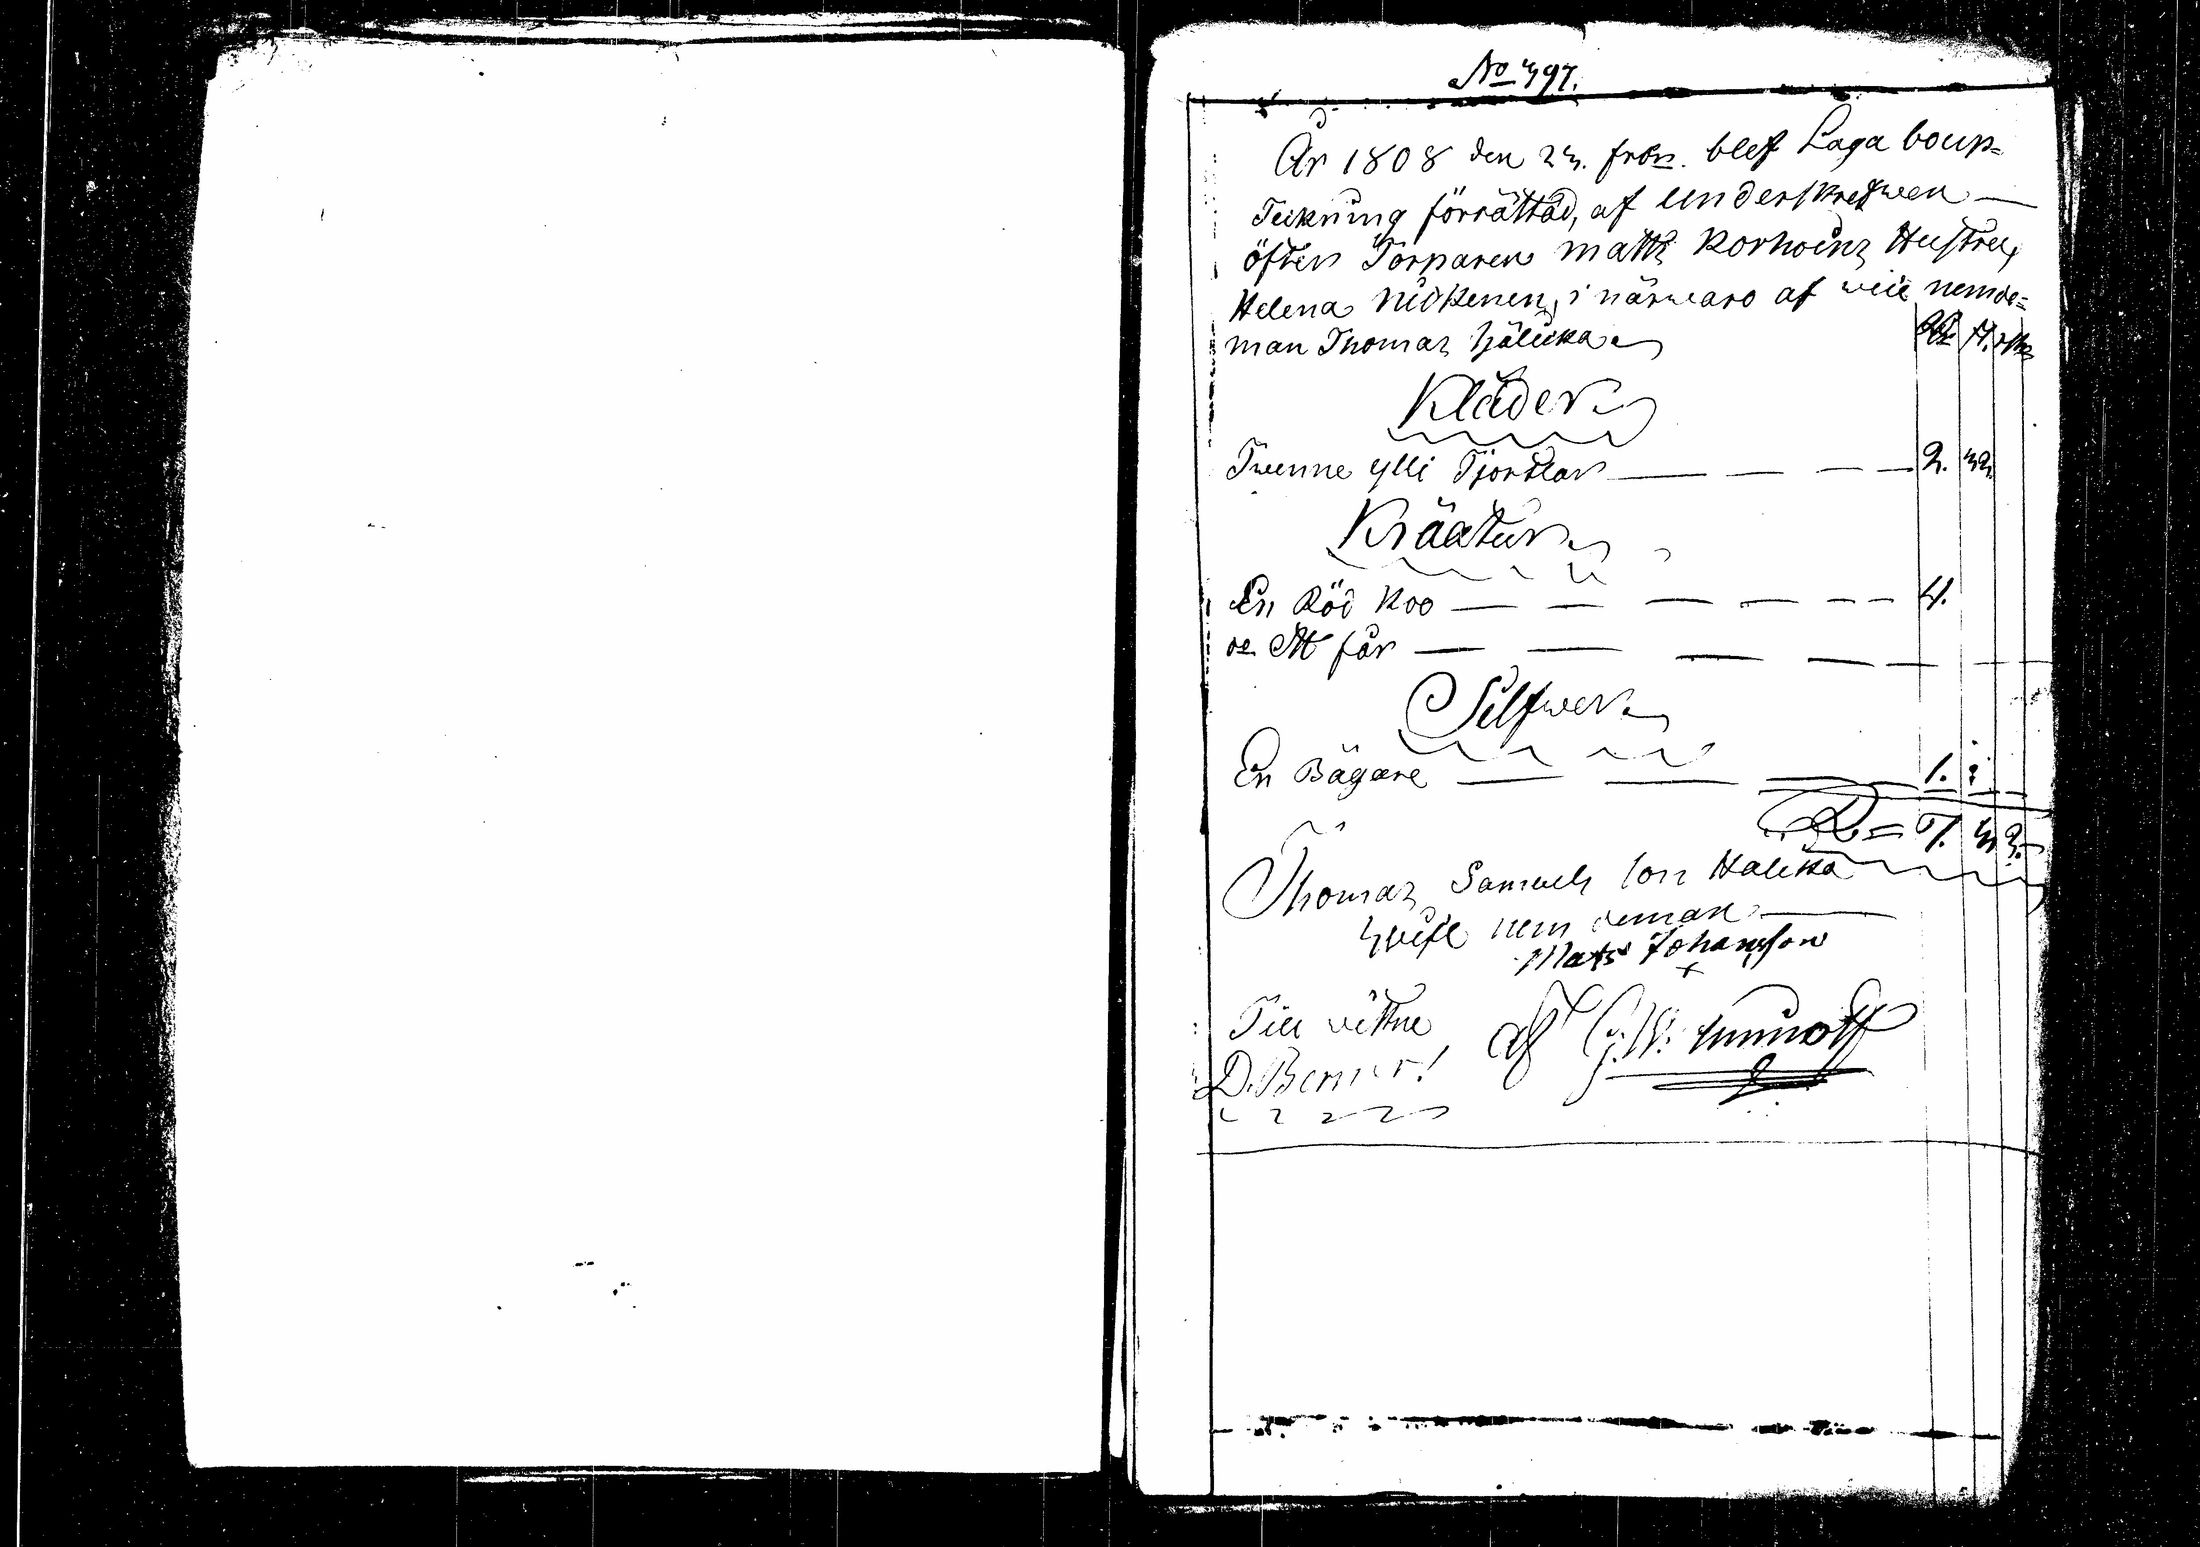 No 397.
År 1808 den 23. febr. blef Laga boup=
Teckning förrättad, af Underskrefwen
öfver Torparen Matts Korhoins Hustru,
Helena Nickenen, i närwaro af nemde=
man Thomas Hälicka
Kläder
Twenne ylle Tjortlar — — — — 2. 32
Kräatur
En Röd Koo — — — — — — 4.
de Ett får — — — — — —
Silfwer
En Bägare — — — — 1. :
R= 7. 32.
Thomas Samuels son Halicka
nem deman
Mats Johansson
x
Till vittne
D. Berner!